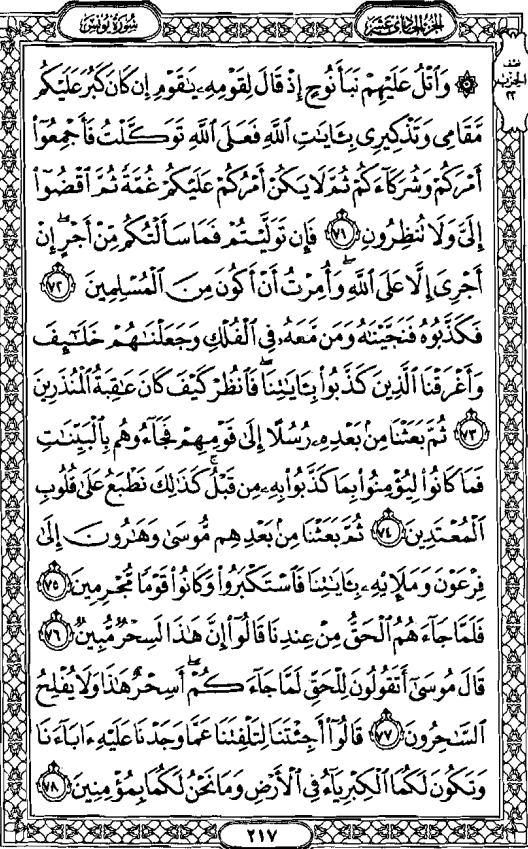 سُورَةُ يُونُسَ
الجُزْءُ الحَادِي عَشَرَ
۞ وَٱتْلُ عَلَيْهِمْ نَبَأَ نُوحٍ إِذْ قَالَ لِقَوْمِهِۦ يَٰقَوْمِ إِن كَانَ كَبُرَ عَلَيْكُم
مَّقَامِى وَتَذْكِيرِى بِـَٔايَٰتِ ٱللَّهِ فَعَلَى ٱللَّهِ تَوَكَّلْتُ فَأَجْمِعُوٓا۟
أَمْرَكُمْ وَشُرَكَآءَكُمْ ثُمَّ لَا يَكُنْ أَمْرُكُمْ عَلَيْكُمْ غُمَّةً ثُمَّ ٱقْضُوٓا۟
إِلَىَّ وَلَا تُنظِرُونِ ﴿٧١﴾ فَإِن تَوَلَّيْتُمْ فَمَا سَأَلْتُكُم مِّنْ أَجْرٍ ۖ إِنْ
أَجْرِىَ إِلَّا عَلَى ٱللَّهِ ۖ وَأُمِرْتُ أَنْ أَكُونَ مِنَ ٱلْمُسْلِمِينَ ﴿٧٢﴾
فَكَذَّبُوهُ فَنَجَّيْنَٰهُ وَمَن مَّعَهُۥ فِى ٱلْفُلْكِ وَجَعَلْنَٰهُمْ خَلَٰٓئِفَ
وَأَغْرَقْنَا ٱلَّذِينَ كَذَّبُوا۟ بِـَٔايَٰتِنَا ۖ فَٱنظُرْ كَيْفَ كَانَ عَٰقِبَةُ ٱلْمُنذَرِينَ
﴿٧٣﴾ ثُمَّ بَعَثْنَا مِنۢ بَعْدِهِۦ رُسُلًا إِلَىٰ قَوْمِهِمْ فَجَآءُوهُم بِٱلْبَيِّنَٰتِ
فَمَا كَانُوا۟ لِيُؤْمِنُوا۟ بِمَا كَذَّبُوا۟ بِهِۦ مِن قَبْلُ ۚ كَذَٰلِكَ نَطْبَعُ عَلَىٰ قُلُوبِ
ٱلْمُعْتَدِينَ ﴿٧٤﴾ ثُمَّ بَعَثْنَا مِنۢ بَعْدِهِم مُّوسَىٰ وَهَٰرُونَ إِلَىٰ
فِرْعَوْنَ وَمَلَإِي۟هِۦ بِـَٔايَٰتِنَا فَٱسْتَكْبَرُوا۟ وَكَانُوا۟ قَوْمًا مُّجْرِمِينَ ﴿٧٥﴾
فَلَمَّا جَآءَهُمُ ٱلْحَقُّ مِنْ عِندِنَا قَالُوٓا۟ إِنَّ هَٰذَا لَسِحْرٌ مُّبِينٌ ﴿٧٦﴾
قَالَ مُوسَىٰٓ أَتَقُولُونَ لِلْحَقِّ لَمَّا جَآءَكُمْ ۖ أَسِحْرٌ هَٰذَا وَلَا يُفْلِحُ
ٱلسَّٰحِرُونَ ﴿٧٧﴾ قَالُوٓا۟ أَجِئْتَنَا لِتَلْفِتَنَا عَمَّا وَجَدْنَا عَلَيْهِ ءَابَآءَنَا
وَتَكُونَ لَكُمَا ٱلْكِبْرِيَآءُ فِى ٱلْأَرْضِ وَمَا نَحْنُ لَكُمَا بِمُؤْمِنِينَ ﴿٧٨﴾
الحزب
٢٢
٢١٧